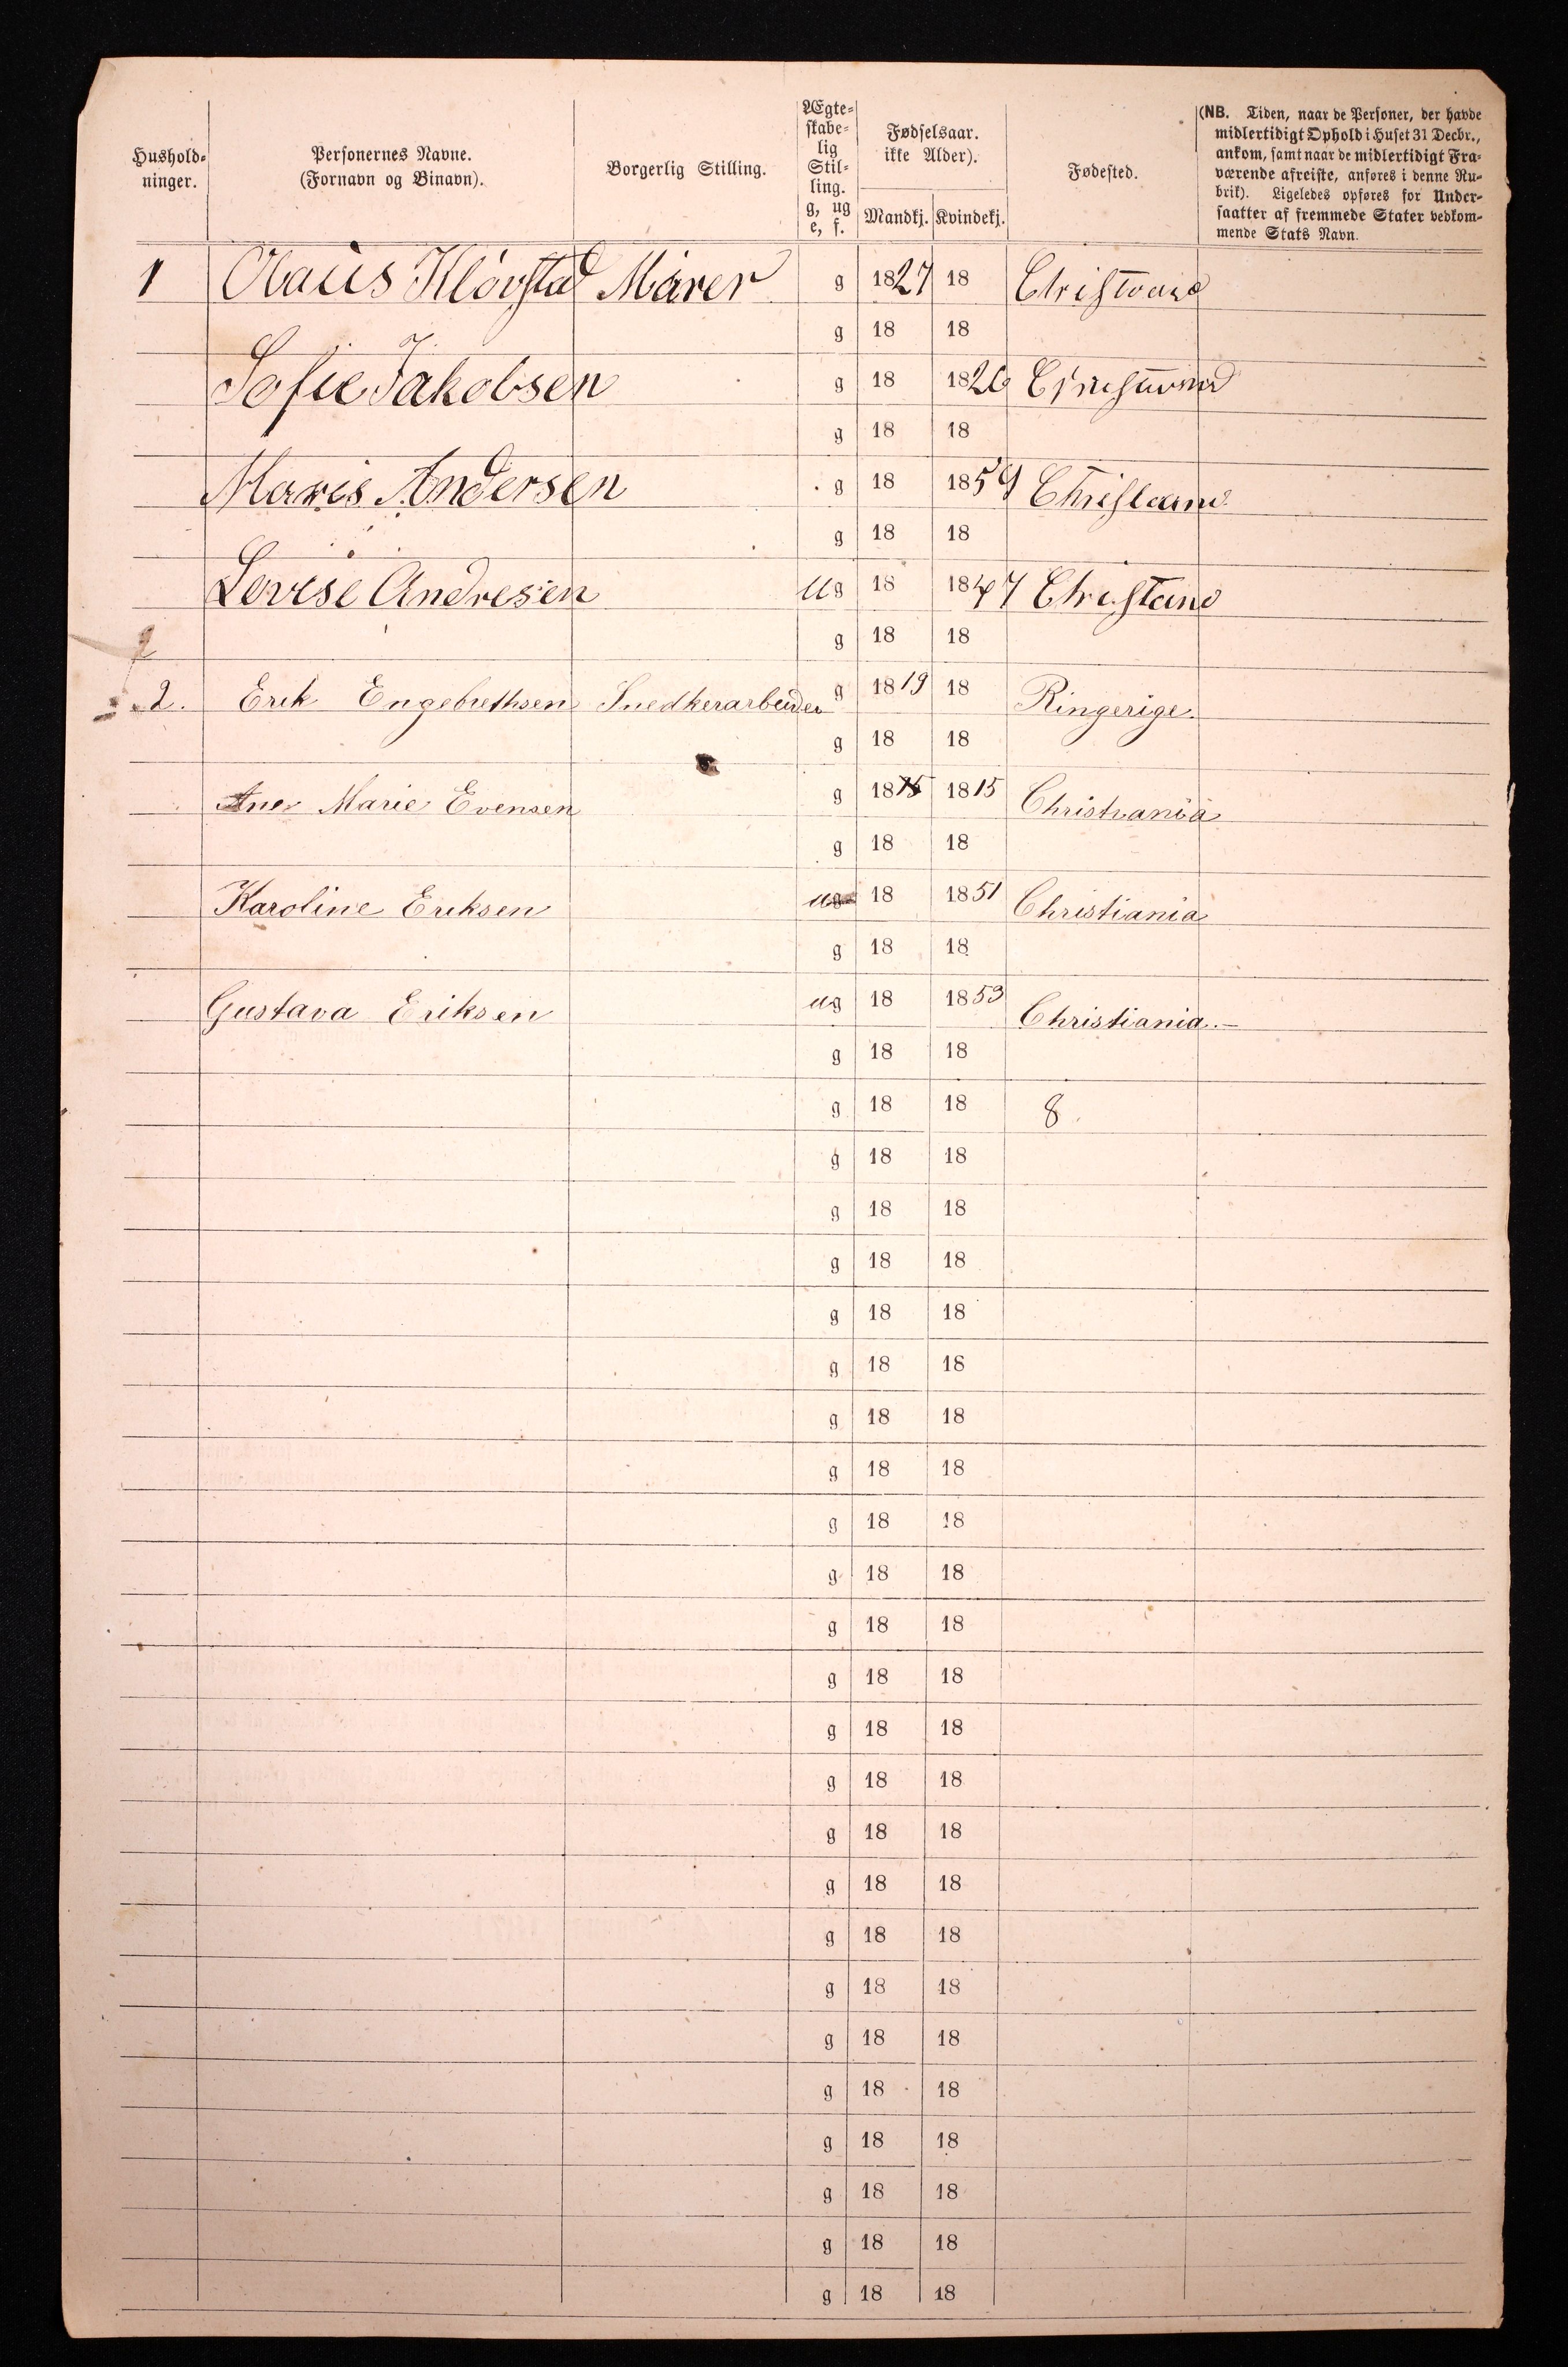 Hushold-
ninger.
Personernes Navne.
(Fornavn og Binavn).
Borgerlig Stilling.
Ægte-
skabe-
lig
Stil-
ling.
g, ug
e, f.
Fødselsaar.
ikke Alder).
Mandkj. Kvindekj.
Fødested.
(NB. Tiden, naar de Personer, der havde
midlertidigt Ophold i Huset 31 Decbr.,
ankom, samt naar de midlertidigt Fra-
værende afreiste, anføres i denne Ru-
brik). Ligeledes opføres for Under-
saatter af fremmede Stater vedkom-
mende Stats Navn.
1 Olaüs Kløvstad Mürer g 1827 18
g 18 18
Sofie Jakobsen g 18 1826
g 18 18
Andersen g 18 1859
g 18 18
Lovise Andresen ug 18 1847
2 g 18 18
2. Erik Engebrethsen Snedkerarbeider g 1819 18 Ringerige.
g 18 18
Ane Marie Evensen g 1815 1815 Christiania
g 18 18
Karoline Eriksen ug 18 1851 Christiania
g 18 18
Gustava Eriksen ug 18 1853 Christiania.-
g 18 18
g 18 18 8
g 18 18
g 18 18
g 18 18
g 18 18
g 18 18
g 18 18
g 18 18
g 18 18
g 18 18
g 18 18
g 18 18
g 18 18
g 18 18
g 18 18
g 18 18
g 18 18
g 18 18
g 18 18
g 18 18
g 18 18
g 18 18
g 18 18
g 18 18